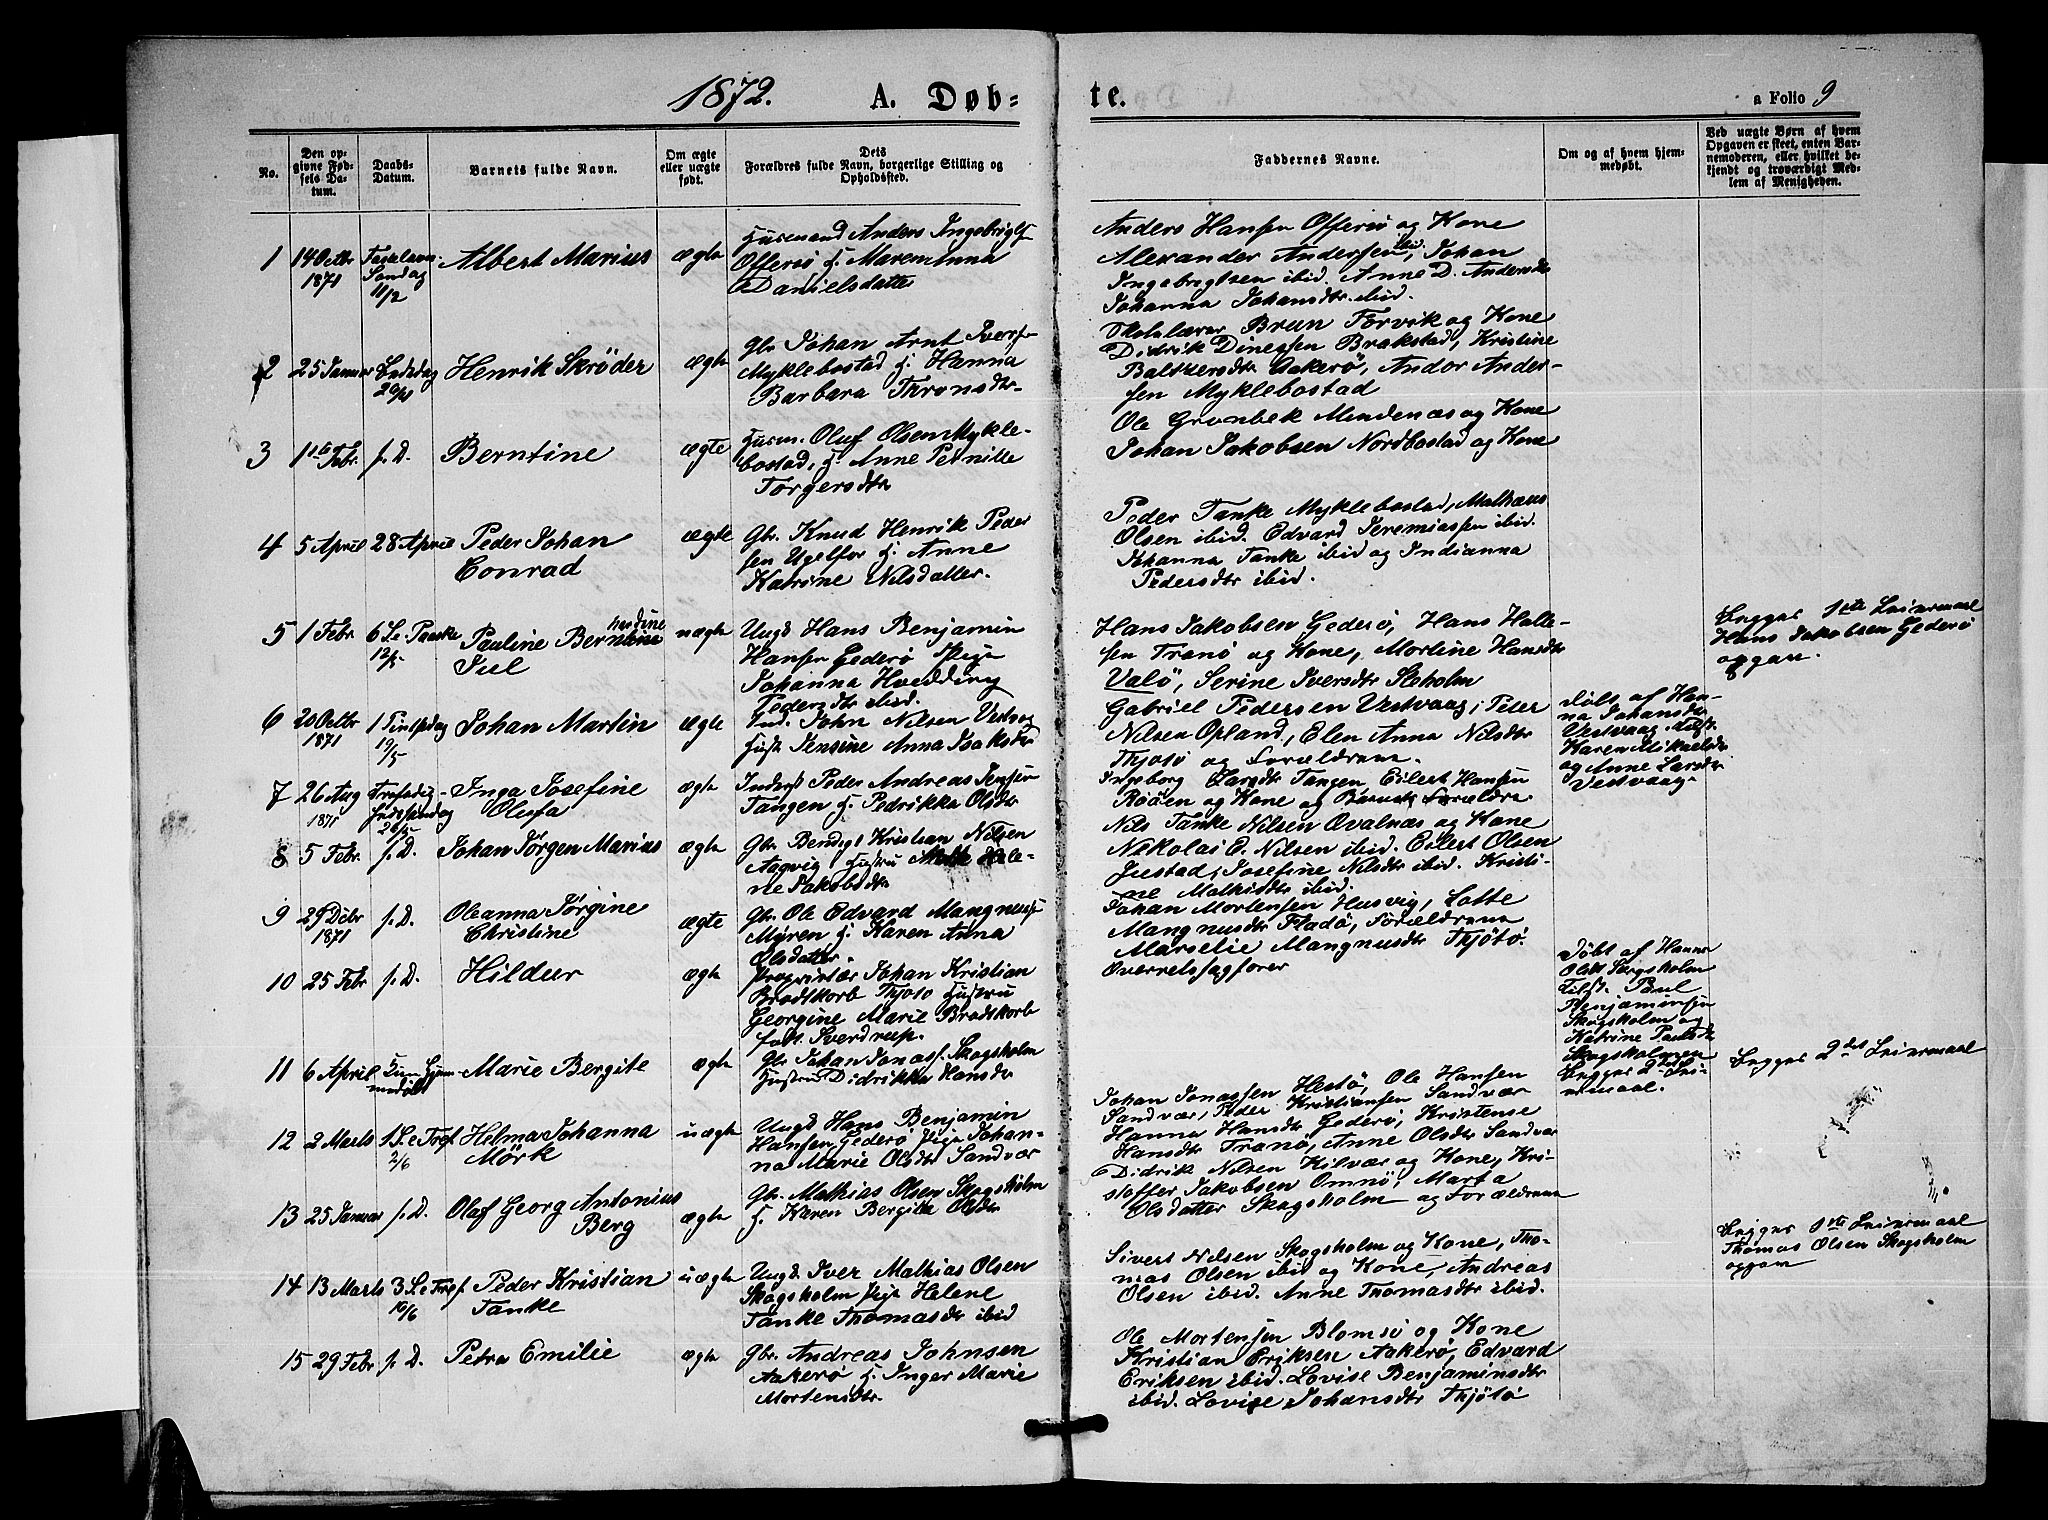 1872. A. Døb-
te.
a Folio 9
No.
Den op-
givne Fød-
sels Da-
tum.
Daabs-
Datum.
Barnets fulde Navn.
Om ægte
eller uægte
født.
Dets
Forældres fulde Navn, borgerlige Stilling og
Opholdssted.
Faddernes Navne.
Om og af hvem hjem-
medøbt.
Ved uægte Børn af hvem
Opgaven er skeet, enten Bar-
nemoderen, eller hvilket be-
kjendt og troværdigt Med-
lem af Menigheden.
1
14 Octbr
1871
Fastelavns
Søndag
11/2
Albert Marius
ægte
Husmand Anders Ingebrigts
Offersø H. Maren Anna
Danielsdatter
Anders Hansen Offersø og Kone
Alexander Andersen ibid, Johan
Ingebrigtsen ibid. Anne D. Andersdtr
Johanna Johansdtr. ibid.
2
25 Januar
Bededag
26/4
Henrik Skrøder
ægte
Gbr Johan Arnt Ivers-
Myklebostad H. Hanna
Barbara Thronsdtr.
Skolelærer Brun Forvik og Kone
Didrik Dinessen Brakstad, Kristine
Baltzersdtr Aakerö, Andor Ander-
sen Myklebostad
3
1ste Febr.
s. D.
Berntine
ægte
Husm. Oluf Olsen Mykle-
bostad, H. Anne Pernille
Torgersdtr
Ole Gronbek Mindenæs og Kone
Johan Jakobsen Nordbostad og Kone
4
5 April
28 April
Peder Johan
Conrad
ægte
Gbr. Knud Henrik Peder
sen Ugelfor H. Anne
Katrine Nilsdatter.
Peder Tanke Myklebostad, Mathæus
Olsen ibid. Edvard Jeremiassen ibid.
Johanna Tanke ibid og Indianna
Pedersdtr ibid.
5
1 Febr.
6 Se. Paaske
12/5
Pauline Berntine
Juel
uægte
Ungk Hans Benjamin
Hansen Gederö Pige
Johanna Hvedding
Pedersdtr ibid.
Hans Jakobsen Gederö, Hans Halle-
sen Tranö og Kone, Mortine Hansdtr
Valö, Serine Iversdtr Steholm
Begges 1ste Leiermaal
Hans Jakobsen Gederö
opgav.
6
20 Octbr
1871
1 Pintsedag
19/5
Johan Martin
ægte
Ind. John Nilsen Vestvog
Hustr Jensine Anna Isaksdtr
Gabriel Pedersen Vestvaag, Peter
Nilsen Opland, Elen Anna Nilsdtr
Thjotö og Forældrene.
Døbt af Han-
na Johansdtr
Vestvaag Tilst.
Karen Mikaelsdtr
og Anne Larsdtr
Vestvaag
7
26 Aug
1871
Trefoldig-
hedssøndag
26/5
Inga Josefine
Olufa
ægte
Inderst Peder Andreas Jensen
Tangen H. Pedrikka Olsdtr
Ingeborg Larsdtr Tangen, Eilert Hansen
Rööen og Kone og Barnets Forældre
8
5 Febr.
s. D.
Johan Jørgen Marius
ægte
Gbr Bendigt Kristian Nilsen
Aagvig Hustru Mette Hele-
ne Jakobsdtr
Nils Tanke Nilsen Qvalnæs og Kone
Nikolai E. Nilsen ibid. Eilert Olsen
Justad, Josefine Nilsdtr ibid. Kristi-
ne Mathisdtr ibid.
9
29 Debr
1871
s. D.
Oleanna Jørgine
Christine
ægte
Gbr Ole Edvard Mangnuss
Myren H. Karen Anna
Olsdatter.
Johan Mortensen Husvig, Lotte
Mangnusdtr Fladö, Forældrene
Marselie Mangnusdtr Thjötö.
10
25 Febr
s. D.
Hildur
ægte
Proprietær Johan Kristian
Brodtkorb Thjoto Hustru
Georgine Marie Brodtkorb
født Sverdrup.
Overretssagfører
11
6 April
Kun Hjem-
medøbt
Marie Bergite
ægte
Gbr Johan Jonass. Skogsholm
Hustru Didrikka Hansdtr
Døbt af Hanna
Olsdtr Skogsholm
Tilst. Paul
Benjaminsen
Skogsholm og
Katrine Paulsdtr
Skogsholmen
Begges 2det Lei-
ermaal.
Begges 2det Leiermaal
12
2 Marts
1 S. e. Tref.
2/6
Helma Johanna
Mörk
uægte
Ungk Hans Benjamin
Hansen Gederö Pige Johan-
na Marie Olsdtr Sandvær
Johan Jonassen Hestö, Ole Hansen
Sandvær, Peder Kristiansen Sandvær
Hanna Hansdtr Gederö, Kristense
Hansdtr Tranö, Anne Olsdtr Sandvær
13
25 Januar
s. D.
Olaf Georg Antonius
Berg
ægte
Gbr. Mathias Olsen Skogsholm
H. Karen Bergitte Olsdtr
Didrik Nilsen Kilvær og Kone, Kri-
stoffer Jakobsen Omnö, Marta
Olsdatter Skogsholm og Forældrene
14
13 Marts
3 S. e Tref.
16/6
Peder Kristian
Tanke
uægte
Ungk Iver Mathias Olsen
Skogsholm Pige Helene
Tanke Thomasdtr ibid
Sivert Nilsen Skogsholm og Kone, Tho-
mas Olsen ibid og Kone, Andreas
Olsen ibid. Anne Thomasdtr ibid.
Begges 1ste Leiermaal
Thomas Olsen Skogsholm
opgav
15
29 Febr
s. D.
Petra Emilie
ægte
Gbr. Andreas Johnsen
Aakerö H. Inger Marie
Mortensdtr.
Ole Mortensen Blomsö og Kone
Kristian Eriksen Aakerö, Edvard
Eriksen ibid. Lovise Benjaminsdtr
ibid. Lovise Johansdtr Thjötö